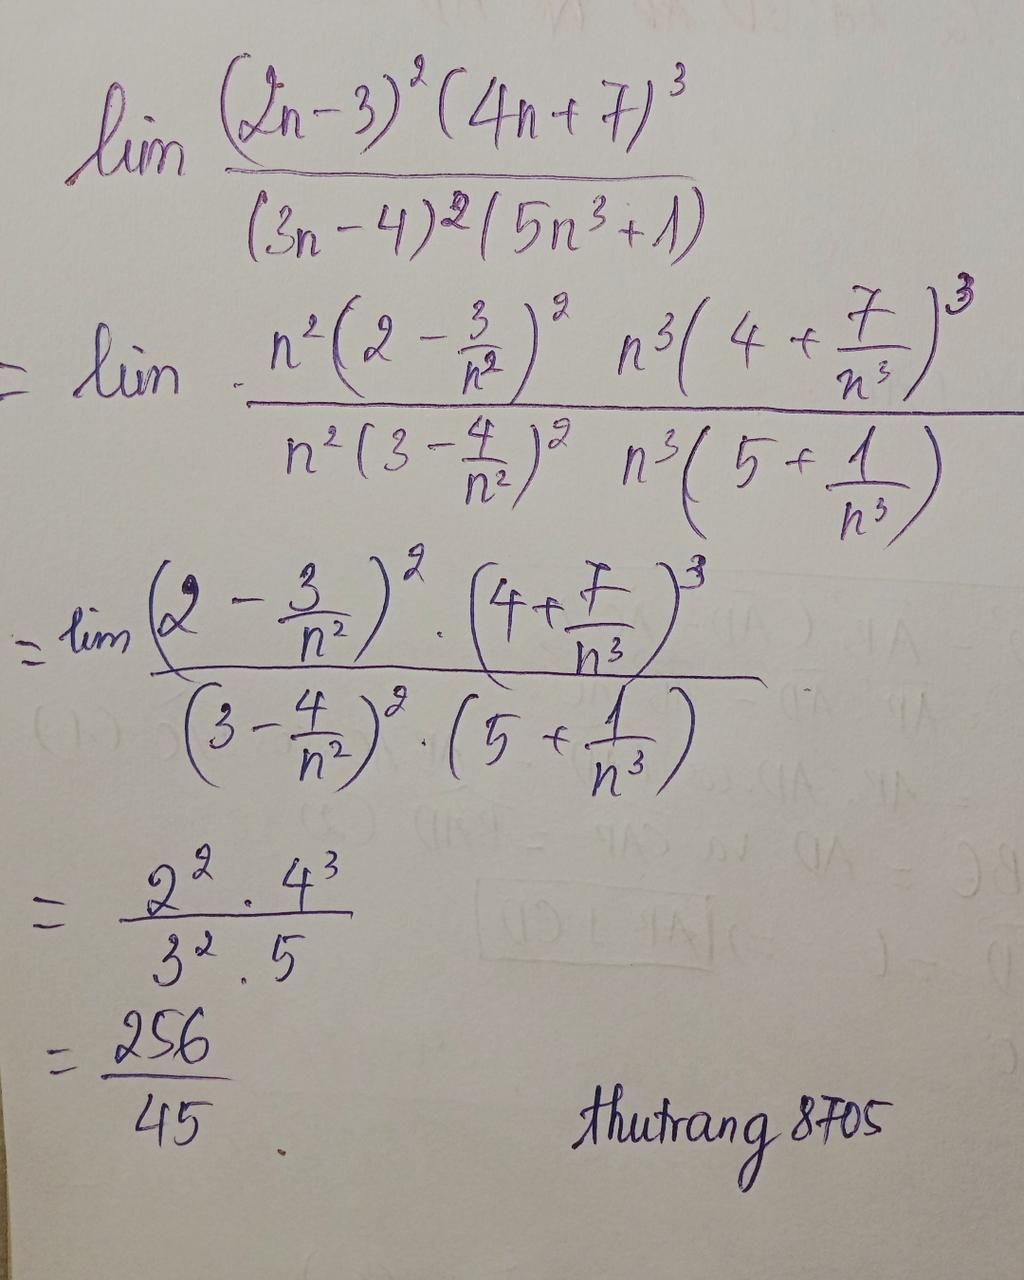 lim (2n-3)²(4n+7)³ / (3n-4)²(5n³+1)
= lim n²(2 - 3/n²)² n³(4 + 7/n³)³ / n²(3 - 4/n²)² n³(5 + 1/n³)
= lim (2 - 3/n²)² . (4 + 7/n³)³ / (3 - 4/n²)² . (5 + 1/n³)
= 2² . 4³ / 3² . 5
= 256 / 45 .
thutrang 8705